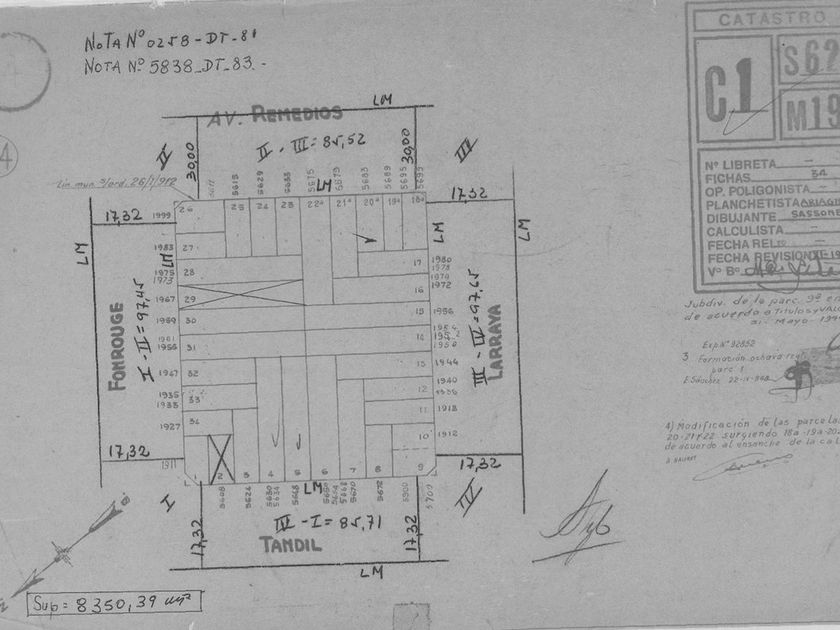 NOTA Nº 0258-DT-81
NOTA Nº 5838-DT-83.-
CATASTRO
C1
S62
M19
Nº LIBRETA
FICHAS 34
OP. POLIGONISTA
PLANCHETISTA ARIAGN
DIBUJANTE SASSONE
CALCULISTA
FECHA RELTO
FECHA REVISION XI-19
Vº Bº
AV. REMEDIOS
LM
II - III = 85,52
30,00
30,00
II
III
4
Lin mun s/ord. 26/1/912
5615
5629
5633
5675
LM
5679
5683
5689
5695
5699
17,32
1999
26
25
24
23
22ª
21ª
20ª
19ª
18ª
17,32
LM
LM
LM
LM
1983
27
1975
1973
28
1967
29
1959
30
1961
1955
31
1947
32
1935
1933
33
1927
34
1911
17
1980
1978
1972
16
15
1956
14
1950
13
1944
1940
12
11
1918
10
1912
9
FONROUGE
I - II = 97,45
III - IV = 97,65
LARRAYA
17,32
17,32
2
3
4
5
6
7
8
5608
5624
5630
5634
5648
LM
5650
5670
5672
5700
I
IV
17,32
17,32
IV - I = 85,71
TANDIL
LM
Sup = 8350,39 m²
Subdiv. de la parc. 9ª en
de acuerdo a Titulos y VAL
al - Mayo - 194
Exp. Nº 92852
3 Formación ochava reg
parc 1
E. Sánchez 22-IX-948
4) Modificación de las parcelas
20-21 y 22 surgiendo 18a-19a-20
de acuerdo al ensanche de la cal